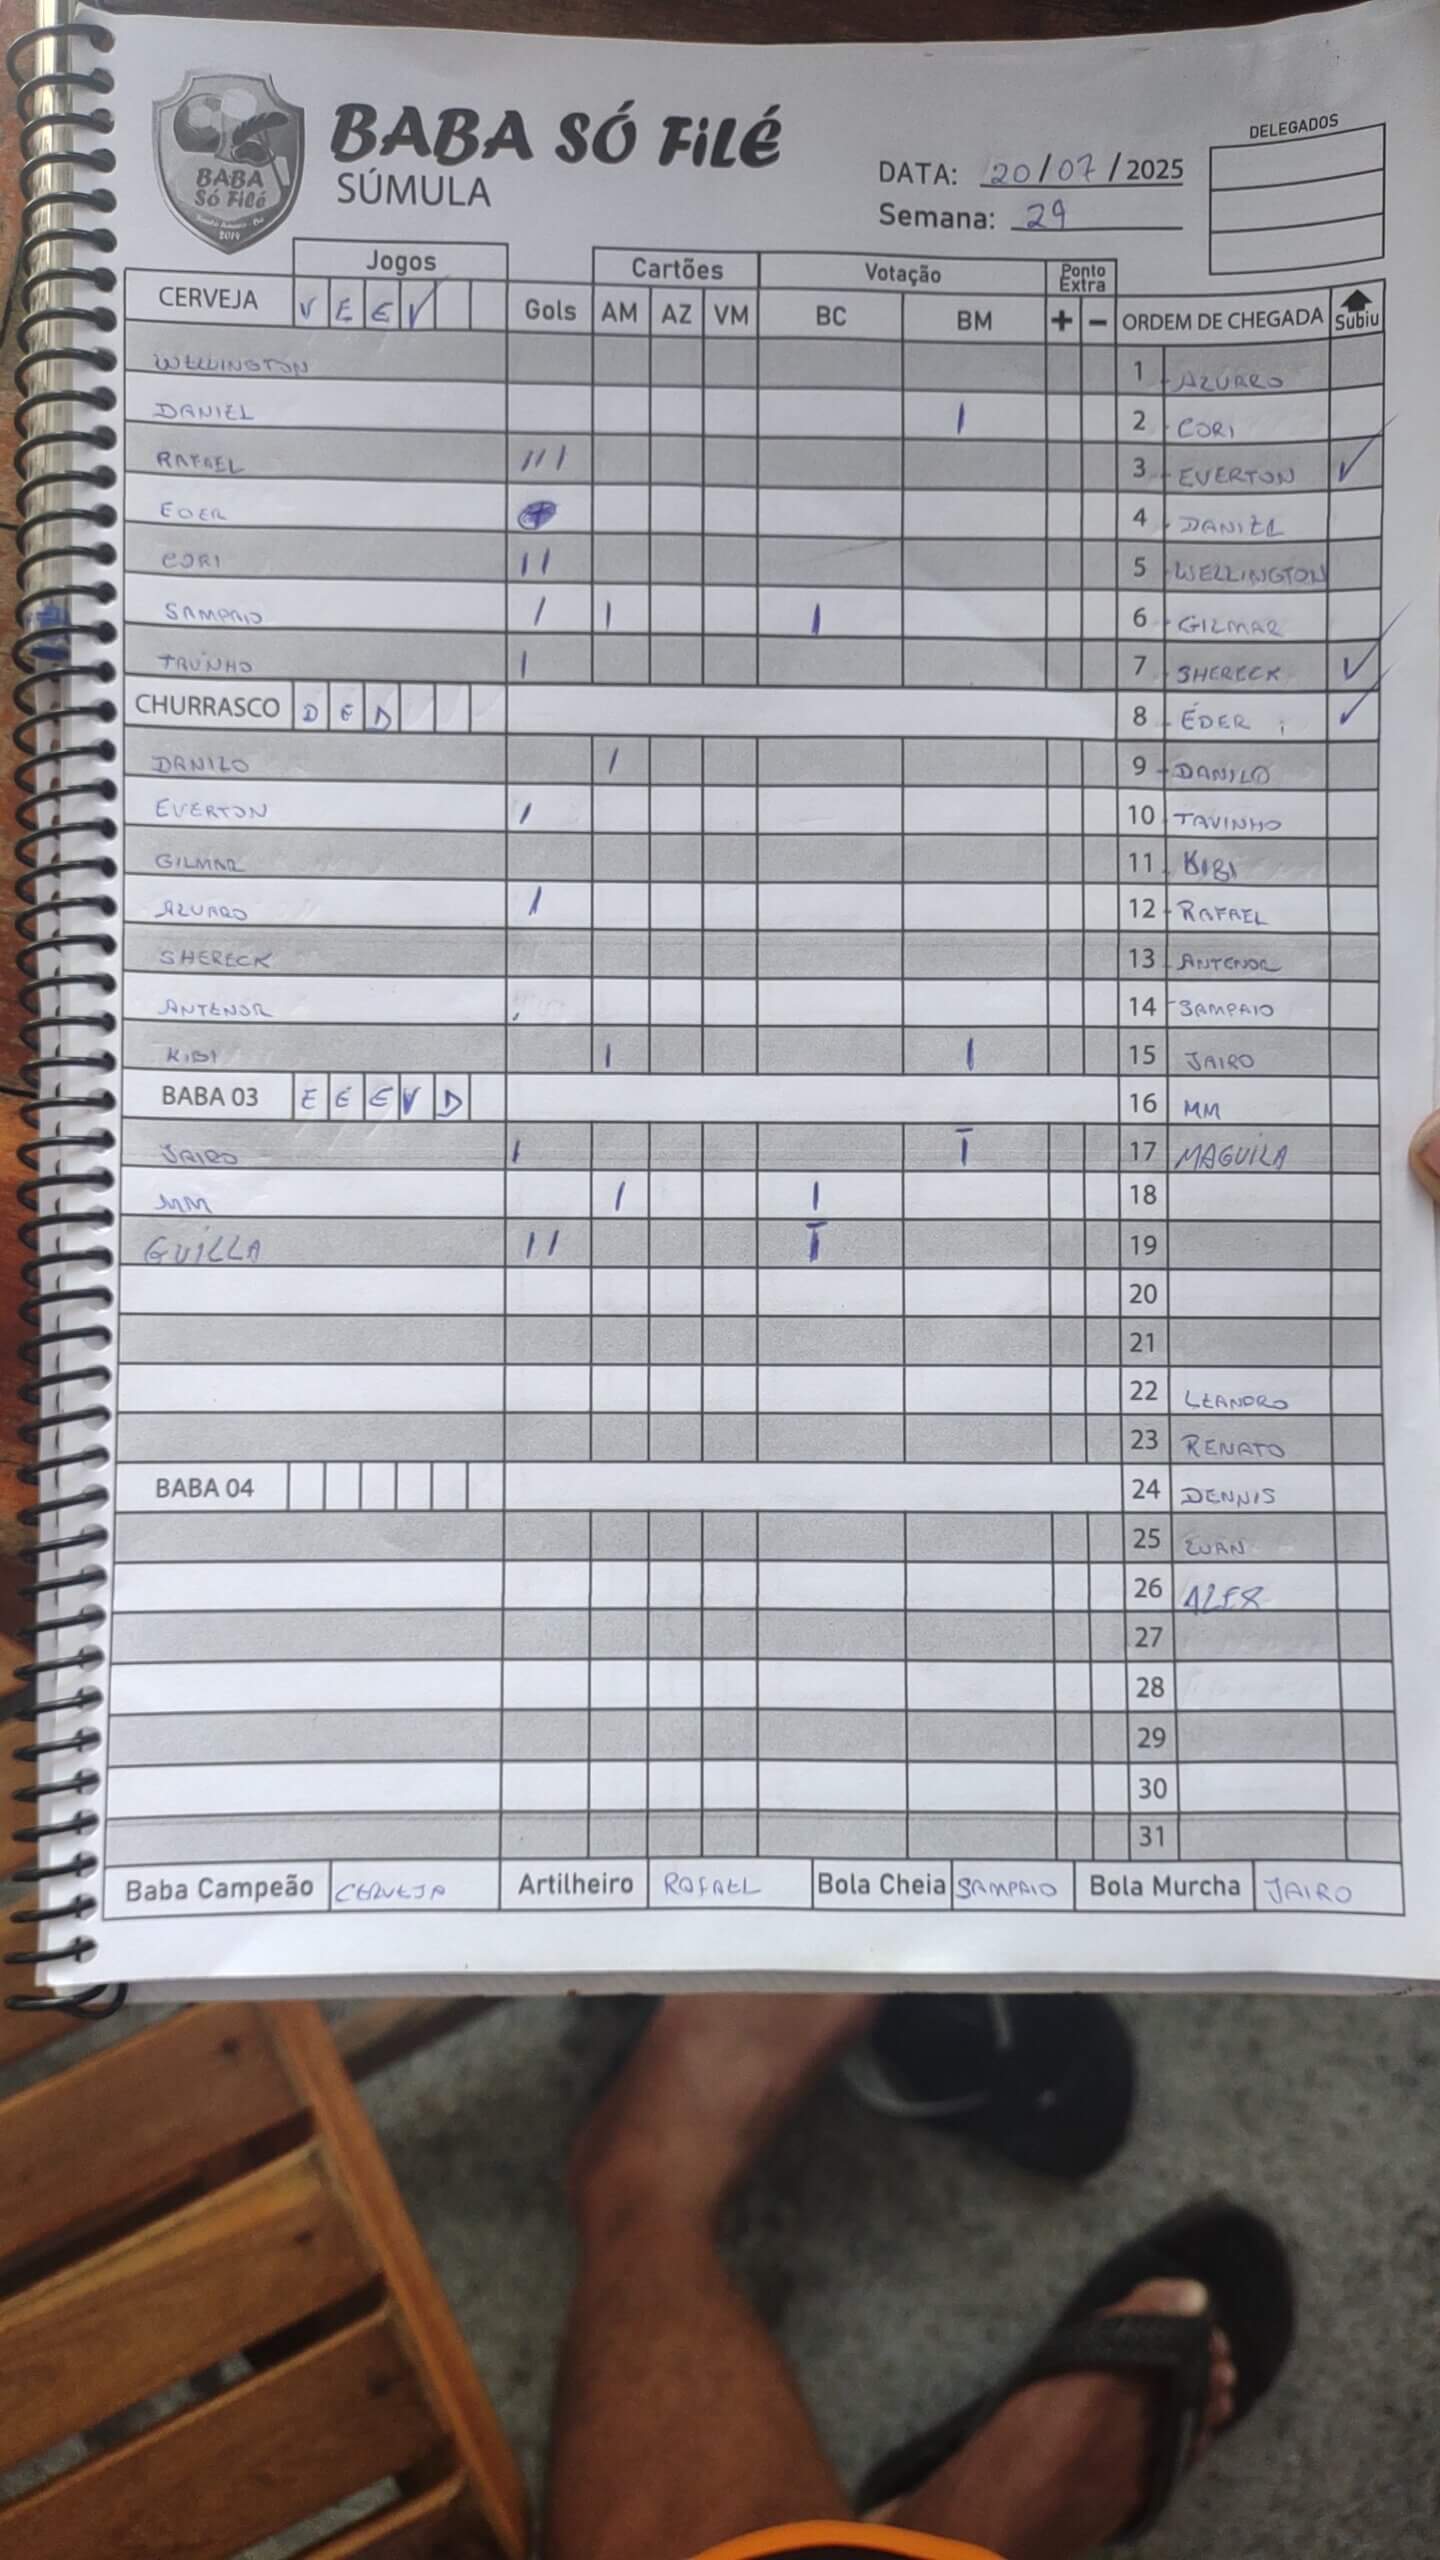 BABA SÓ FiLÉ
SÚMULA
BABA
Só Filé
2014
DATA: 20/07/2025
Semana: 29
DELEGADOS
Jogos Cartões Votação Ponto Extra
CERVEJA V E E V Gols AM AZ VM BC BM + - ORDEM DE CHEGADA Subiu
WELLINGTON 1 AZVARO
DANIEL I 2 CORI
RAFAEL III 3 EVERTON ✓
EDER 4 DANIEL
CORI II 5 WELLINGTON
SAMPAIO I I I 6 GILMAR
TAVINHO I 7 SHERECK ✓
CHURRASCO D E D 8 ÉDER ✓
DANILO I 9 DANILO
EVERTON I 10 TAVINHO
GILMAR 11 KIBI
AZVARO I 12 RAFAEL
SHERECK 13 ANTENOR
ANTENOR 14 SAMPAIO
KIBI I I 15 JAIRO
BABA 03 E E E V D 16 MM
JAIRO I I 17 MAGUILA
MM I I 18
GUILLA II I 19
20
21
22 LEANDRO
23 RENATO
BABA 04 24 DENNIS
25 LUAN
26 ALEX
27
28
29
30
31
Baba Campeão CERVEJA Artilheiro RAFAEL Bola Cheia SAMPAIO Bola Murcha JAIRO